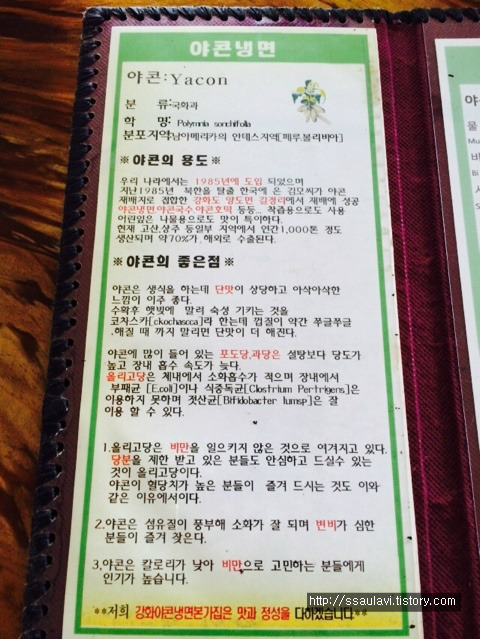 야콘냉면
야콘:Yacon
분 류:국화과
학 명: Polymnia sonchifolla
분포지역:남아메리카의 안데스지역[페루볼리비아]
※야콘의 용도※
우리 나라에서는 1985년에 도입 되었으며
지난1985년 북한을 탈출 한국에 온 김모씨가 야콘
재배지로 접합한 강화도 양도면 길정리에서 재배에 성공
야콘냉면,야콘국수.야콘호떡 등등... 착즙용으로도 사용
어린잎은 나물용으로도 맛이 특이하다.
현재 고산,상주 등일부 지역에서 연간1,000톤 정도
생산되며 약70%가,해외로 수출된다.
※야콘의 좋은점※
야콘은 생식을 하는데 단맛이 상당하고 아삭아삭한
느낌이 이주 좋다.
수확후 햇빛에 말려 숙성 기키는 것을
코차스카[ckochascca]라 한는데 껍질이 약간 쭈글쭈글
.해질 때 까지 말리면 단맛이 더 해진다.
야콘에 많이 들어 있는 포도당,과당은 설탕보다 당도가
높고 장내 흡수 속도가 늦다.
올리고당은 체내에서 소화흡수가 적으며 장내에서
부패균 [E.coli]이나 식중독균[Clostrium Pertrigens]은
이용하지 못하며 젓산균[Bifidobacter lumsp]은 잘
이용 할 수 있다.
1.올리고당은 비만을 일으키지 않은 것으로 여겨지고 있다.
당분을 제한 받고 있은 분들도 안심하고 드실수 있는
것이 올리고당이다.
야콘이 혈당치가 높은 분들이 즐겨 드시는 것도 이와
같은 이유에서이다.
2.야콘은 섬유질이 풍부해 소화가 잘 되며 변비가 심한
분들이 즐겨 찾은다.
3,야콘은 칼로리가 낮아 비만으로 고민하는 분들에게
인기가 높습니다.
**저희 강화야콘냉면본가집은 맛과 정성을 다하겠습니다**
야
물
Mu
비
Bi
사
http://ssaulavi.tistory.com